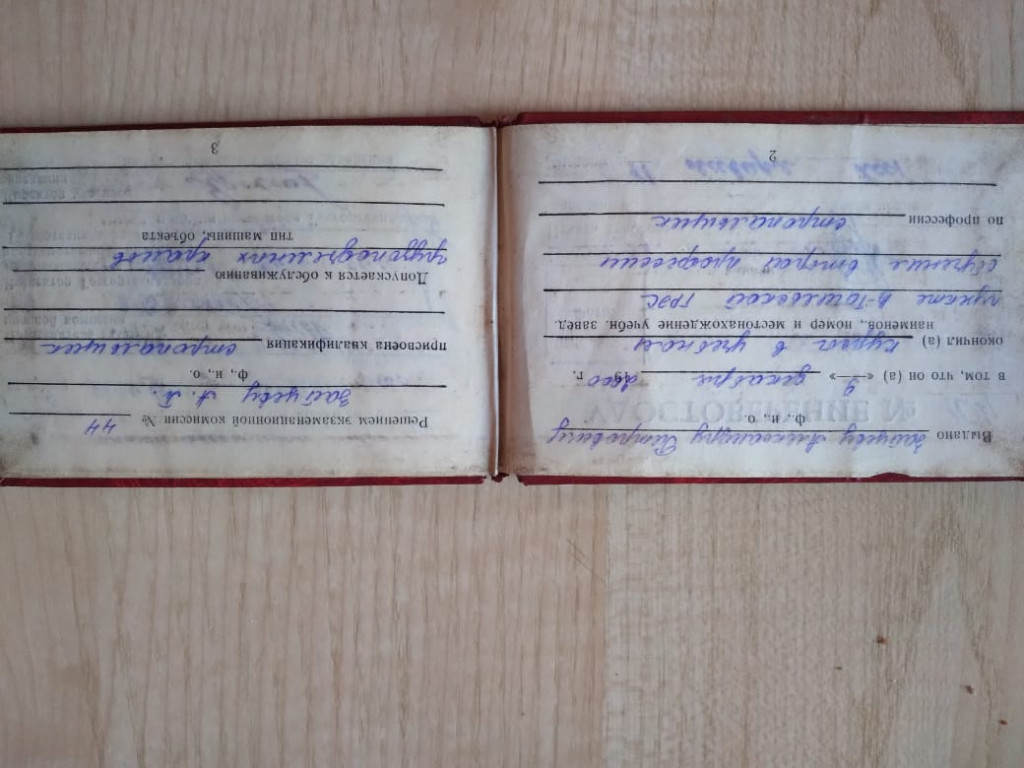 Выдано Зайцеву Александру Петровичу
ф., и., о.
в том, что он (а) « 9 » декабря 19 2000 г.
окончил (а) курсы в учебном
наименов., номер и местонахождение учебн. завед.
пункте В-Тагильской ГРЭС
обучение второй профессии
по профессии стропальщик
2
Решением экзаменационной комиссии № 44
Зайцеву А. П.
ф., и., о.
присвоена квалификация стропальщик
Допускается к обслуживанию
грузоподъемных кранов
тип машины, объекта
3